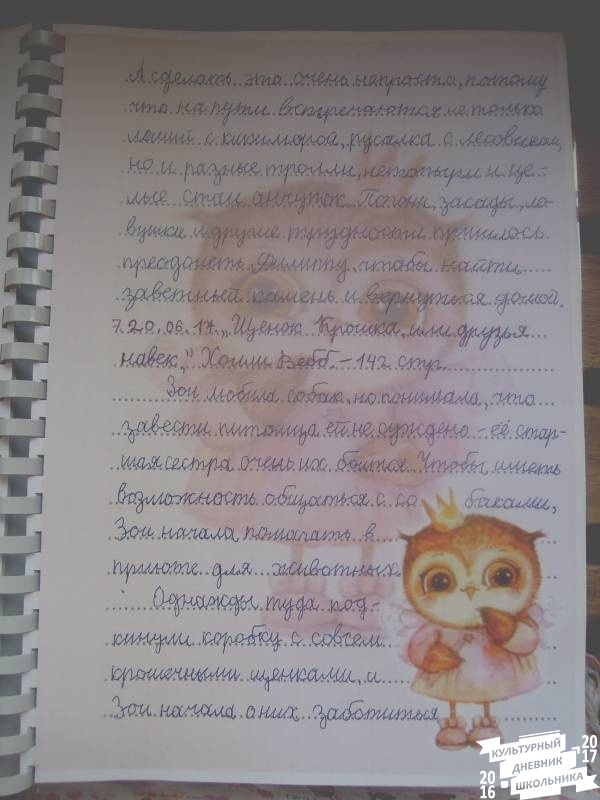 А сделать это очень непросто, потому
что на пути встречаются не только
леший с кикиморой, русалка с лесовиком,
но и разные тролли, нетопыри и це-
лые стаи анчуток. Погони, засады, ло-
вушки и другие трудности пришлось
преодолеть Филиппу, чтобы найти
заветный камень и вернуться домой.
7. 20.06.17. „Щенок Крошка, или друзья
навек," Холли Вебб. – 142 стр.
Зои любила собак, но понимала, что
завести питомца ей не суждено – её стар-
шая сестра очень их боится. Чтобы иметь
возможность общаться с со баками,
Зои начала помогать в
приюте для животных.
Однажды туда под-
кинули коробку с совсем
крошечными щенками, и
Зои начала о них заботиться
КУЛЬТУРНЫЙ
ДНЕВНИК
ШКОЛЬНИКА
2016
2017